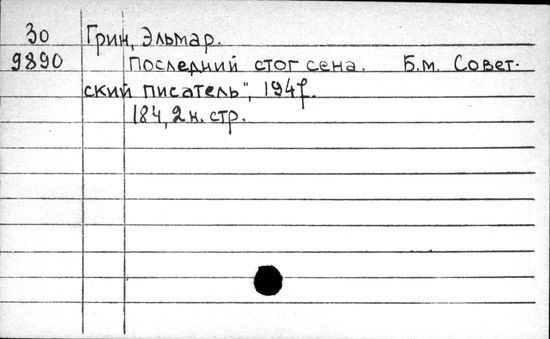 30 Грин, Эльмар.
9890 Последний стог сена. Б.м. Совет-
ский писатель", 1947.
184, 2 н. стр.